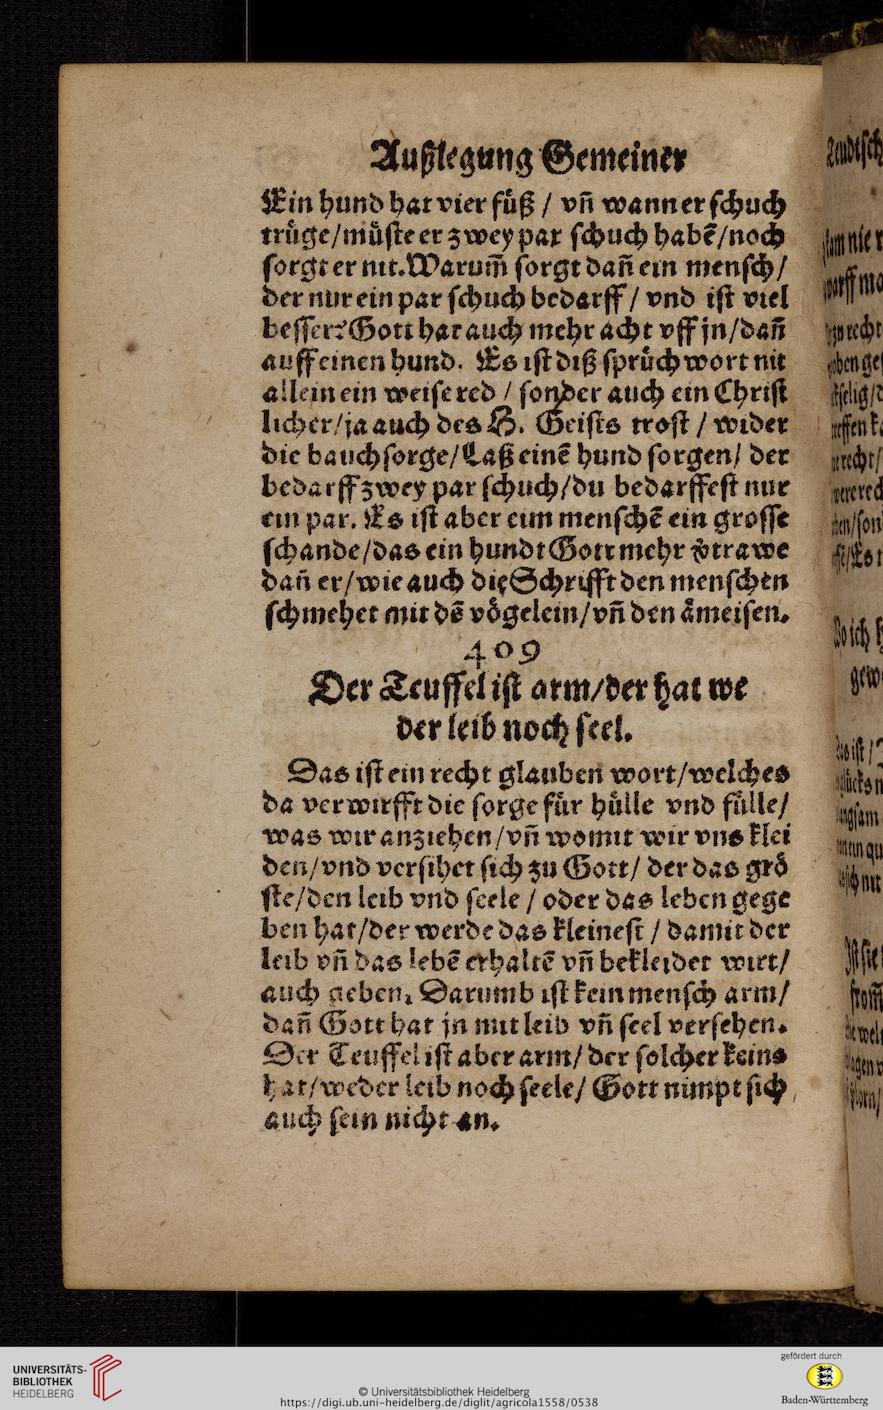 Außlegung Gemeiner
Ein hund hat vier fuͤß / vñ wann er ſchuch
truͤge/muͤſte er zwey par ſchuch habē/noch
ſorgt er nit. Warum̃ ſorgt dañ ein menſch/
der nur ein par ſchuch bedarff / vnd iſt viel
beſſer? Gott hat auch mehr acht vff jn/dañ
auff einen hund. Es iſt diß ſpruͤchwort nit
allein ein weiſe red / ſonder auch ein Chriſt
licher/ja auch des H. Geiſts troſt / wider
die bauchſorge/Laß einē hund ſorgen/ der
bedarff zwey par ſchuch/du bedarffeſt nur
ein par. Es iſt aber eim menſchē ein groſſe
ſchande/das ein hundt Gott mehr v̈trawe
dañ er/wie auch die Schrifft den menſchen
ſchmehet mit dē voͤgelein/vñ den aͤmeiſen.
409
Der Teuffel iſt arm/der hat we
der leib noch ſeel.
Das iſt ein recht glauben wort/welches
da verwirfft die ſorge fuͤr huͤlle vnd fuͤlle/
was wir anziehen/vñ womit wir vns klei
den/vnd verſihet ſich zu Gott/ der das groͤ
ſte/den leib vnd ſeele / oder das leben gege
ben hat/der werde das kleineſt / damit der
leib vñ das lebē erhaltē vñ bekleidet wirt/
auch geben. Darumb iſt kein menſch arm/
dañ Gott hat jn mit leib vñ ſeel verſehen.
Der Teuffel iſt aber arm/ der ſolcher keins
hat/weder leib noch ſeele/ Gott nimpt ſich
auch ſein nicht an.
UNIVERSITÄTS-
BIBLIOTHEK
HEIDELBERG
© Universitätsbibliothek Heidelberg
https://digi.ub.uni-heidelberg.de/diglit/agricola1558/0538
gefördert durch
Baden-Württemberg